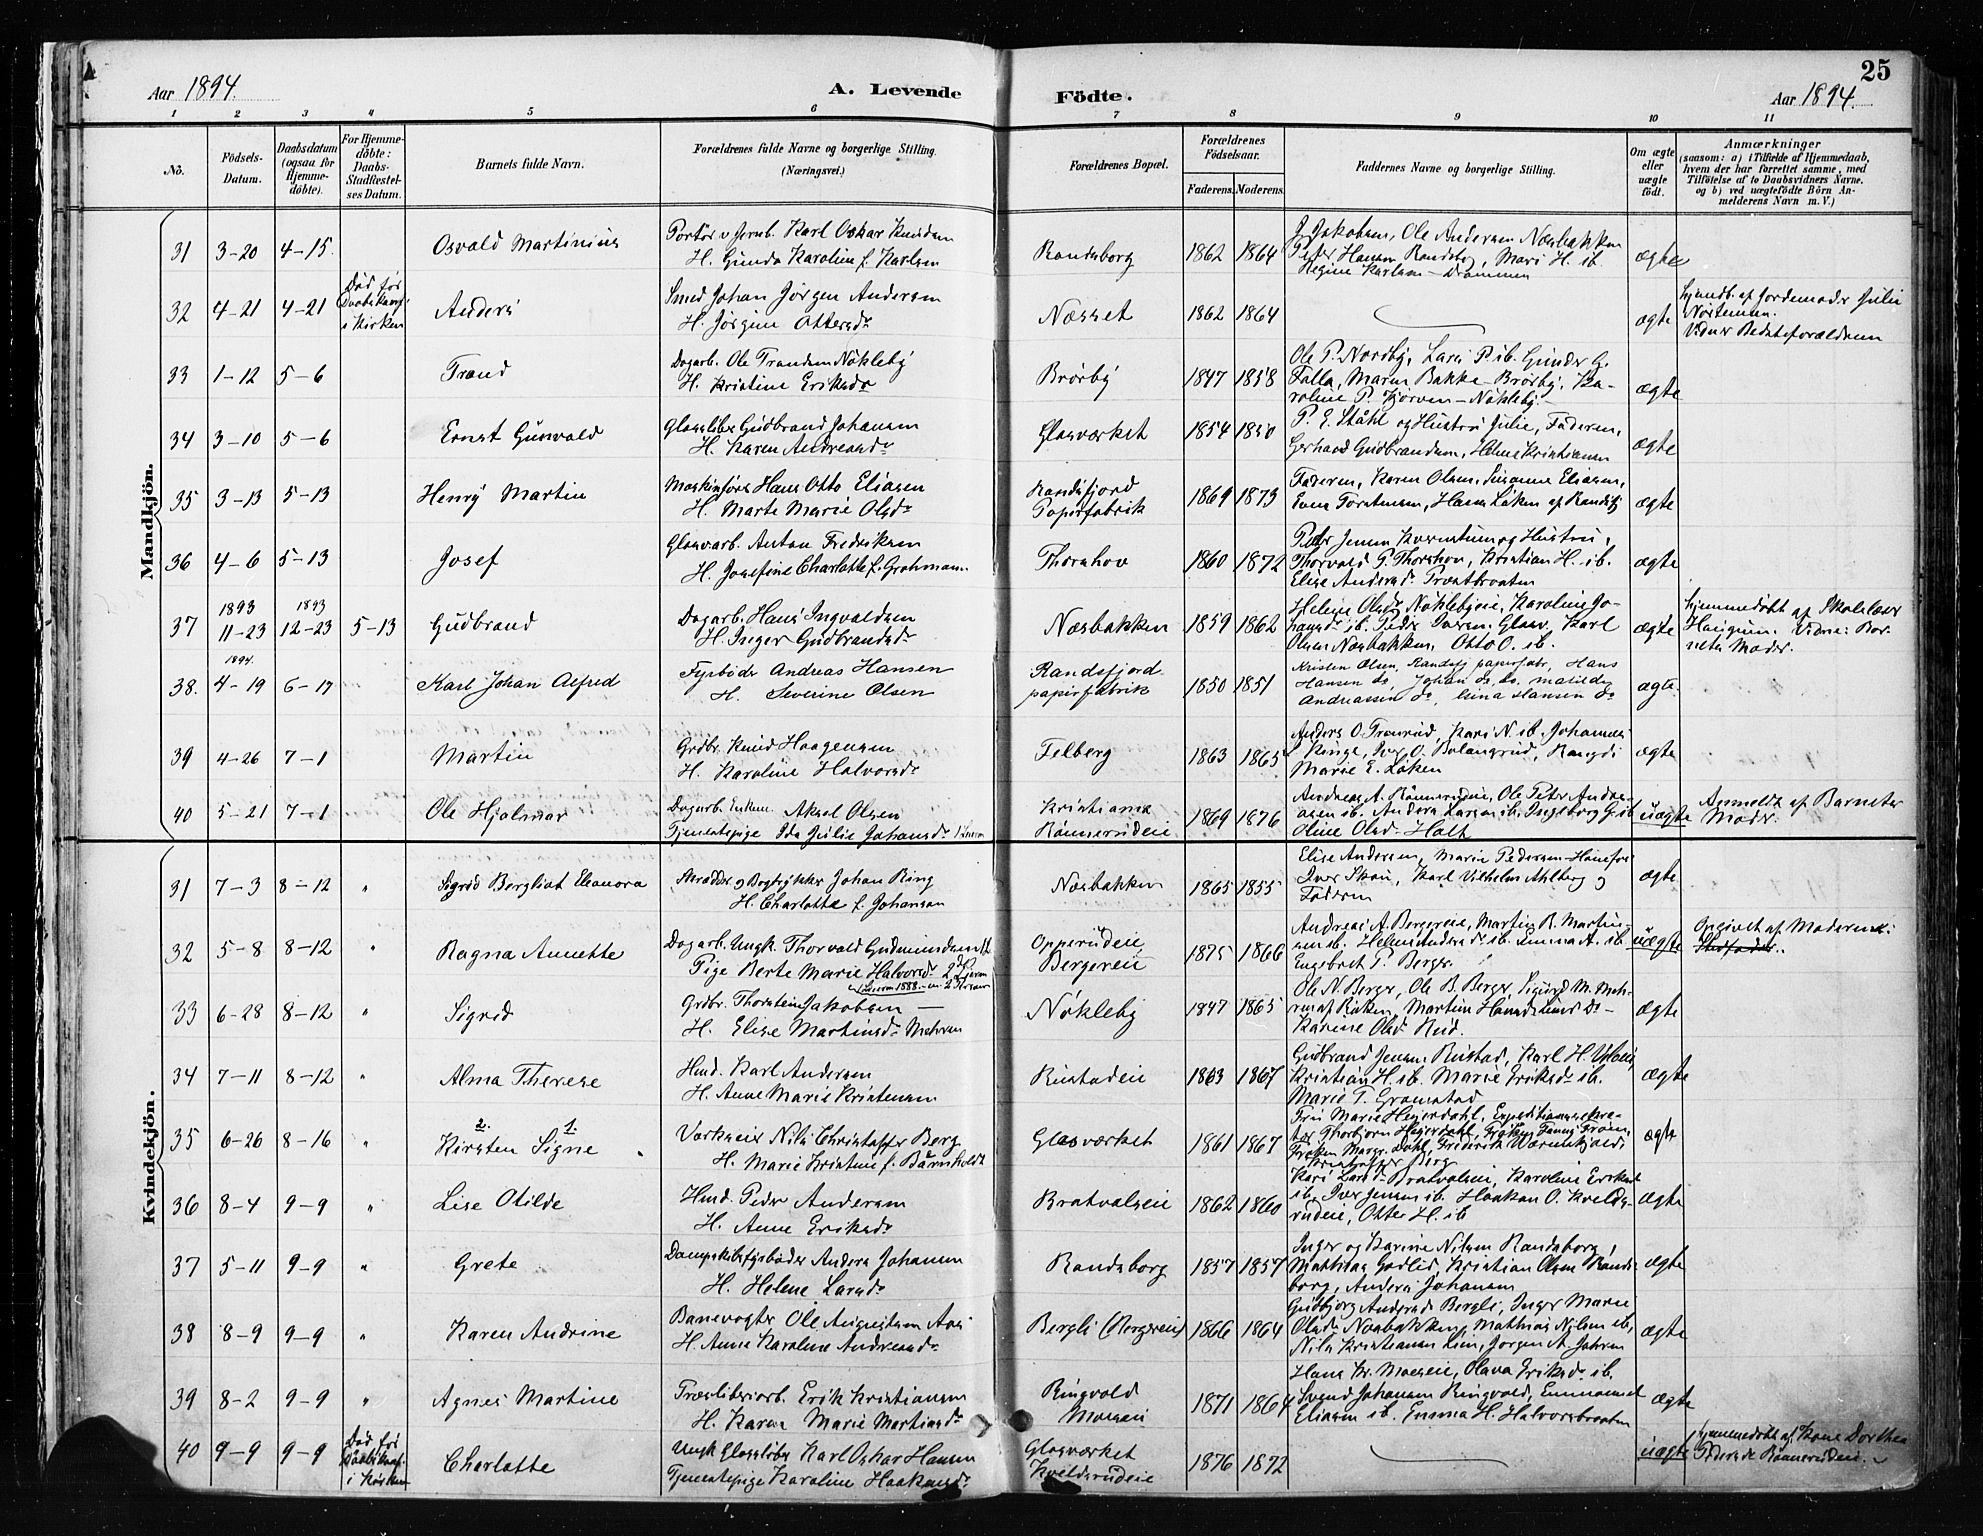 Aar 1894.
A. Levende Födte.
Aar 1894.
25
1 2 3 4 5 6 7 8 9 10 11
No.
Födsels-Datum.
Daabsdatum (ogsaa for Hjemme-döbte).
For Hjemme-döbte: Daabs-Stadfæstel-ses Datum.
Barnets fulde Navn.
Forældrenes fulde Navne og borgerlige Stilling. (Næringsvei.)
Forældrenes Bopæl.
Forældrenes Födselsaar.
Faderens. Moderens.
Faddernes Navne og borgerlige Stilling.
Om ægte eller uægte födt.
Anmærkninger
(saasom: a) i Tilfælde af Hjemmedaab, hvem der har forrettet samme, med Tilföielse af to Daabsvidners Navne, og b) ved uægtefödte Börn An-melderens Navn m. V.)
Mandkjön.
31 3-20 4-15 Osvald Martinius
Karl Oskar Knudsen
H. Gunda Karoline f. Karlsen
Randsborg 1862 1864
Ole Andersen Næsbakken
Peter Hansen Randsborg, Mari H. ib.
Regine Karlsen - Drammen
ægte
32 4-21 4-21 Död før Daabsbekræf. i Kirken
Anders
Smed Johan Jörgen Andersen
H. Jörgine Ottersdr
Næsset 1862 1864 ægte
Hjemdb. af Jordemoder Julie
33 1-12 5-6 Trond
Dagarb. Ole Trondsen Nökleby
H. Kristine Eriksdr
Brörby 1847 1858
Ole P. Nordby, Lars P. ib. Gunder G.
Falla, Maren Bakke - Brörby, Ka-
roline P. - Nökleby
ægte
34 3-10 5-6 Ernst Gunvald
Glassliber Gudbrand Johansen
H. Karen Andreasdr
Glasværket 1854 1850
P. E. Ståhl og Hustru Julie, Faderen,
Gerhard Gudbrandsen, Helene Kristiansen
ægte
35 3-13 5-13 Henry Martin
Maskinförer Hans Otto Eliasen
H. Marte Marie Olsdr
Randsfjord Papirfabrik 1869 1873
Faderen, Karen Olsen, Susanne Eliasen,
Even Torstensen, Hans Löken af Randsfj
ægte
36 4-6 5-13 Josef
Glasarb. Anton Fredriksen
H. Josefine Charlotte f. Grohmann
Thorshov 1860 1872
Peder Jensen og Hustru,
Thorvald P. Thorshov, Kristian H. ib.
Elise Andersdr
ægte
37 1893 11-23 1893 12-23 5-13 Gudbrand
Dagarb. Hans Ingvaldsen
H. Inger Gudbrandsdr
Næsbakken 1859 1862
Helene Olsdr Nöklebyeie, Karoline Jo-
hansdr ib. Peder Iversen Glasv. Karl
Olsen Næsbakken, Otto O. ib.
ægte
Hjemmedöbt af Skolelærer
Vidne: Bar-
nets Moder.
38. 1894. 4-19 6-17 Karl Johan Alfred
Fyrböder Andreas Hansen
H. Severine Olsen
Randsfjord papirfabrik 1850 1851
Kristen Olsen, Randsfj papirfabr, Hans
Hansen do, Johan do, do. Matilde
Andreassen do, Gina Hansen do
ægte
39 4-26 7-1 Martin
Grdbr. Knud Haagensen
H. Karoline Halvorsdr
Felberg 1863 1865
Anders O. Trosrud, Kari N. ib. Johannes
Ringe, Iver O. Bolangrud, Rangdi
Marie E. Löken
ægte
40 5-21 7-1 Ole Hjalmar
Dagarb. Enkem. Aksel Olsen
Tjenestepige Ida Julie Johansdr
Kristiania
Rönnerudeie 1869 1876
Andreas A. Rönnerudeie, Ole Peter Andre-
asen ib. Anders Larsen ib. Ingeborg G. ib
Oline Olsd. Holt
uægte
Anmeldt af Barnets Moder.
Kvindekjön.
31 7-3 8-12 " Sigrid Bergliot Eleonora
Skrædder og Bogtrykker Johan Ring
H. Charlotte f. Johansen
Næsbakken 1865 1855
Elise Andersen, Marie Pedersen - Hönefos
Iver Skou, Karl Vilhelm Ahlberg og
Faderen
ægte
32 5-8 8-12 " Ragna Annette
Dagarb. Ungk. Thorvald Gudmundsen
Pige Berte Marie Halvorsdr
Opperudeie
Bergereie 1875 1866
Andreas A. Bergereie, Martin R. Martin-
sen ib. Helene Andersd. ib. Emma A. ib.
Engebret P. Berger
uægte
Opgivet af Moderen
33 6-28 8-12 " Sigrid
Grdbr. Thorstein Jakobsen
H. Elise Martinsdr Mehren
Nökleby 1847 1865
Ole N. Berger, Ole B. Berger, Sigurd M. Meh-
ren af Röken, Martin do -
Karine Olsd Rud.
ægte
34 7-11 8-12 " Alma Therese
Hmd. Karl Andersen
H. Anne Marie Kristensen
Rustadeie 1863 1867
Gudbrand Jensen Rustad, Karl H.
Kristian H. ib. Marie Eriksdr ib.
Marie T. Gramstad
ægte
35 6-26 8-16 " 2. Kirsten 1. Signe
Værkseier Nils Christopher Berg
H. Marie Kristine f. Bårnholdt
Glasværket 1861 1867
Fru Marie Heyerdahl, Expeditionssekre-
tær Thorbjörn Heyerdahl, Fröken Fanny
Fröken Margr. Dahl, Frederik
Kristoffer Berg
ægte
36 8-4 9-9 " Lise Otilde
Hmd. Peder Andersen
H. Anne Eriksdr
Bratvalseie 1862 1860
Kari Larsd. Bratvalseie, Karoline Eriksd
ib. Iver Jensen ib. Haakon O. Kvelds-
rudeie, Otter H. ib
ægte
37 5-11 9-9 " Grete
Dampskibsfyrböder Anders Johansen
H. Helene Larsdr
Randsborg 1857 1857
Inger og Karine Nilsen Randsborg,
Mathias Godlid, Kristian Olsen Rands-
borg, Anders Johansen
ægte
38 8-9 9-9 " Karen Andrine
Banevogter Ole Augustsen Aas
H. Anne Karoline Andreasdr
Bergli (Bergereie) 1866 1864
Gudbjörg Andersd Bergli, Inger Marie
Olsdr Næsbakken, Mathias Nilsen ib,
Nils Kristiansen Lien, Jörgen A. Johnsen
ægte
39 8-2 9-9 " Agnes Martine
Træsliberiarb. Erik Kristiansen
H. Karen Marie Martinsdr
Ringvold
Moeseie 1871 1864
Hans Kr. Moeseie, Olava Eriksdr ib.
Svend Johansen Ringvold, Emmanuel
Eliasen ib. Emma H. Halvorsbraaten
ægte
40 9-9 9-9 Död før Daabsbekræf. i Kirken
Charlotte
Ungk Glassliber Karl Oskar Hansen
Tjenestepige Karoline Haakensdr
Glasværket
Kveldsrudeie 1876 1872
uægte
Hjemmedöbt af Kone Dorthea
Pedersdr Rönnerudeie.